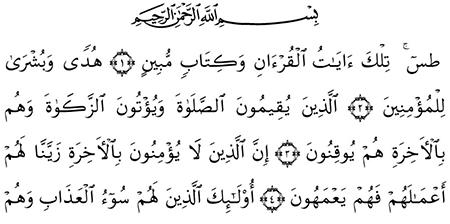 بِسْمِ ٱللَّهِ ٱلرَّحْمَٰنِ ٱلرَّحِيمِ
طسٓ ۚ تِلْكَ ءَايَٰتُ ٱلْقُرْءَانِ وَكِتَابٍ مُّبِينٍ ﴿١﴾ هُدًى وَبُشْرَىٰ
لِلْمُؤْمِنِينَ ﴿٢﴾ ٱلَّذِينَ يُقِيمُونَ ٱلصَّلَوٰةَ وَيُؤْتُونَ ٱلزَّكَوٰةَ وَهُم
بِٱلْأَخِرَةِ هُمْ يُوقِنُونَ ﴿٣﴾ إِنَّ ٱلَّذِينَ لَا يُؤْمِنُونَ بِٱلْأَخِرَةِ زَيَّنَّا لَهُمْ
أَعْمَٰلَهُمْ فَهُمْ يَعْمَهُونَ ﴿٤﴾ أُو۟لَٰٓئِكَ ٱلَّذِينَ لَهُمْ سُوٓءُ ٱلْعَذَابِ وَهُمْ